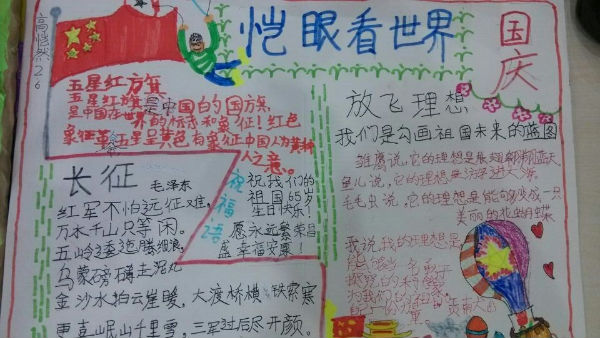 高恺然 26
恺眼看世界
国庆
五星红方旗
五星红方旗是中国的国方旗,
是中国在世界的标志和象征!红色
象征革命,五星呈黄色,有象征中国人为黄种
人之意。
长征
毛泽东
红军不怕远征难,
万水千山只等闲。
五岭逶迤腾细浪,
乌蒙磅礴走泥丸
金沙水拍云崖暖,大渡桥横铁索寒
更喜岷山千里雪,三军过后尽开颜。
祝福语
祝我们的
祖国65岁
生日快乐!
愿永远繁荣昌
盛幸福安康!
放飞理想
我们是勾画祖国未来的蓝图
雏鹰说,它的理想是展翅翱翔蓝天
鱼儿说,它的理想是
毛毛虫说,它的理想是能够变成一只
美丽的花蝴蝶
我说我的理想是
能够当一名
为我们的祖国